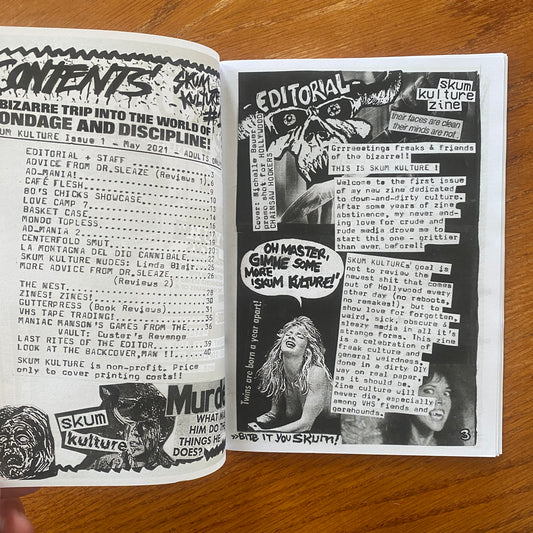 CONTENTS
SKUM
KULTURE
BIZARRE TRIP INTO THE WORLD OF
ONDAGE AND DISCIPLINE!
UM KULTURE Issue 1 - May 2021
ADULTS
EDITORIAL + STAFF
ADVICE FROM DR.SLEAZE (Reviews 1).6
AD_MANIA!
CAFÉ FLESH
CHICKS SHOWCASE
LOVE CAMP 7
BASKET CASE
MONDO TOPLESS
AD_MANIA 2
CENTERFOLD SMUT
LA MONTAGNA DEL DIO CANNIBALE
SKUM KULTURE NUDES: Linda Blair
MORE ADVICE FROM DR.SLEAZE
(Reviews 2)
THE NEST
ZINES! ZINES!
GUTTERPRESS (Book Reviews)
VHS TAPE TRADING
MANIAC MANSON'S GAMES FROM THE...36
VAULT: Custer's Revenge
LAST RITES OF THE EDITOR
LOOK AT THE BACKCOVER,MAN !!
SKUM KULTURE is non-profit. Price
only to cover printing costs!!
skum
kulture
Murde
WHAT MA
HIM DO THE
THINGS HE
DOES?
EDITORIAL
skum
kulture
zine
their faces are clean
their minds are not.
Cover: Michelle Bauer
promo shot for HOLLYWOOD
CHAINSAW HOOKERS
Grrreeetings freaks & friends
of the bizarre!!
THIS IS SKUM KULTURE !
Welcome to the first issue
of my new zine dedicated
to down-and-dirty culture.
After some years of zine
abstinence, my never end-
ing love for crude and
rude media drove me to
start this one - grittier
than ever before!!
OH MASTER,
GIMME SOME
MORE
SKUM KULTURE!
Twins are born a year apart!
SKUM KULTURES' goal is
not to review the
newest shit that comes
out of Hollywood every
other day (no reboots,
no remakes!), but to
show love for forgotten,
weird, sick, obscure &
sleazy media in all it's
strange forms. This zine
is a celebration of
freak culture and
general weirdness,
done in a dirty DIY
way on real paper,
as it should be.
Zine culture will
never die, especially
among VHS fiends and
gorehounds.
>>BITE IT YOU SKUM!
3